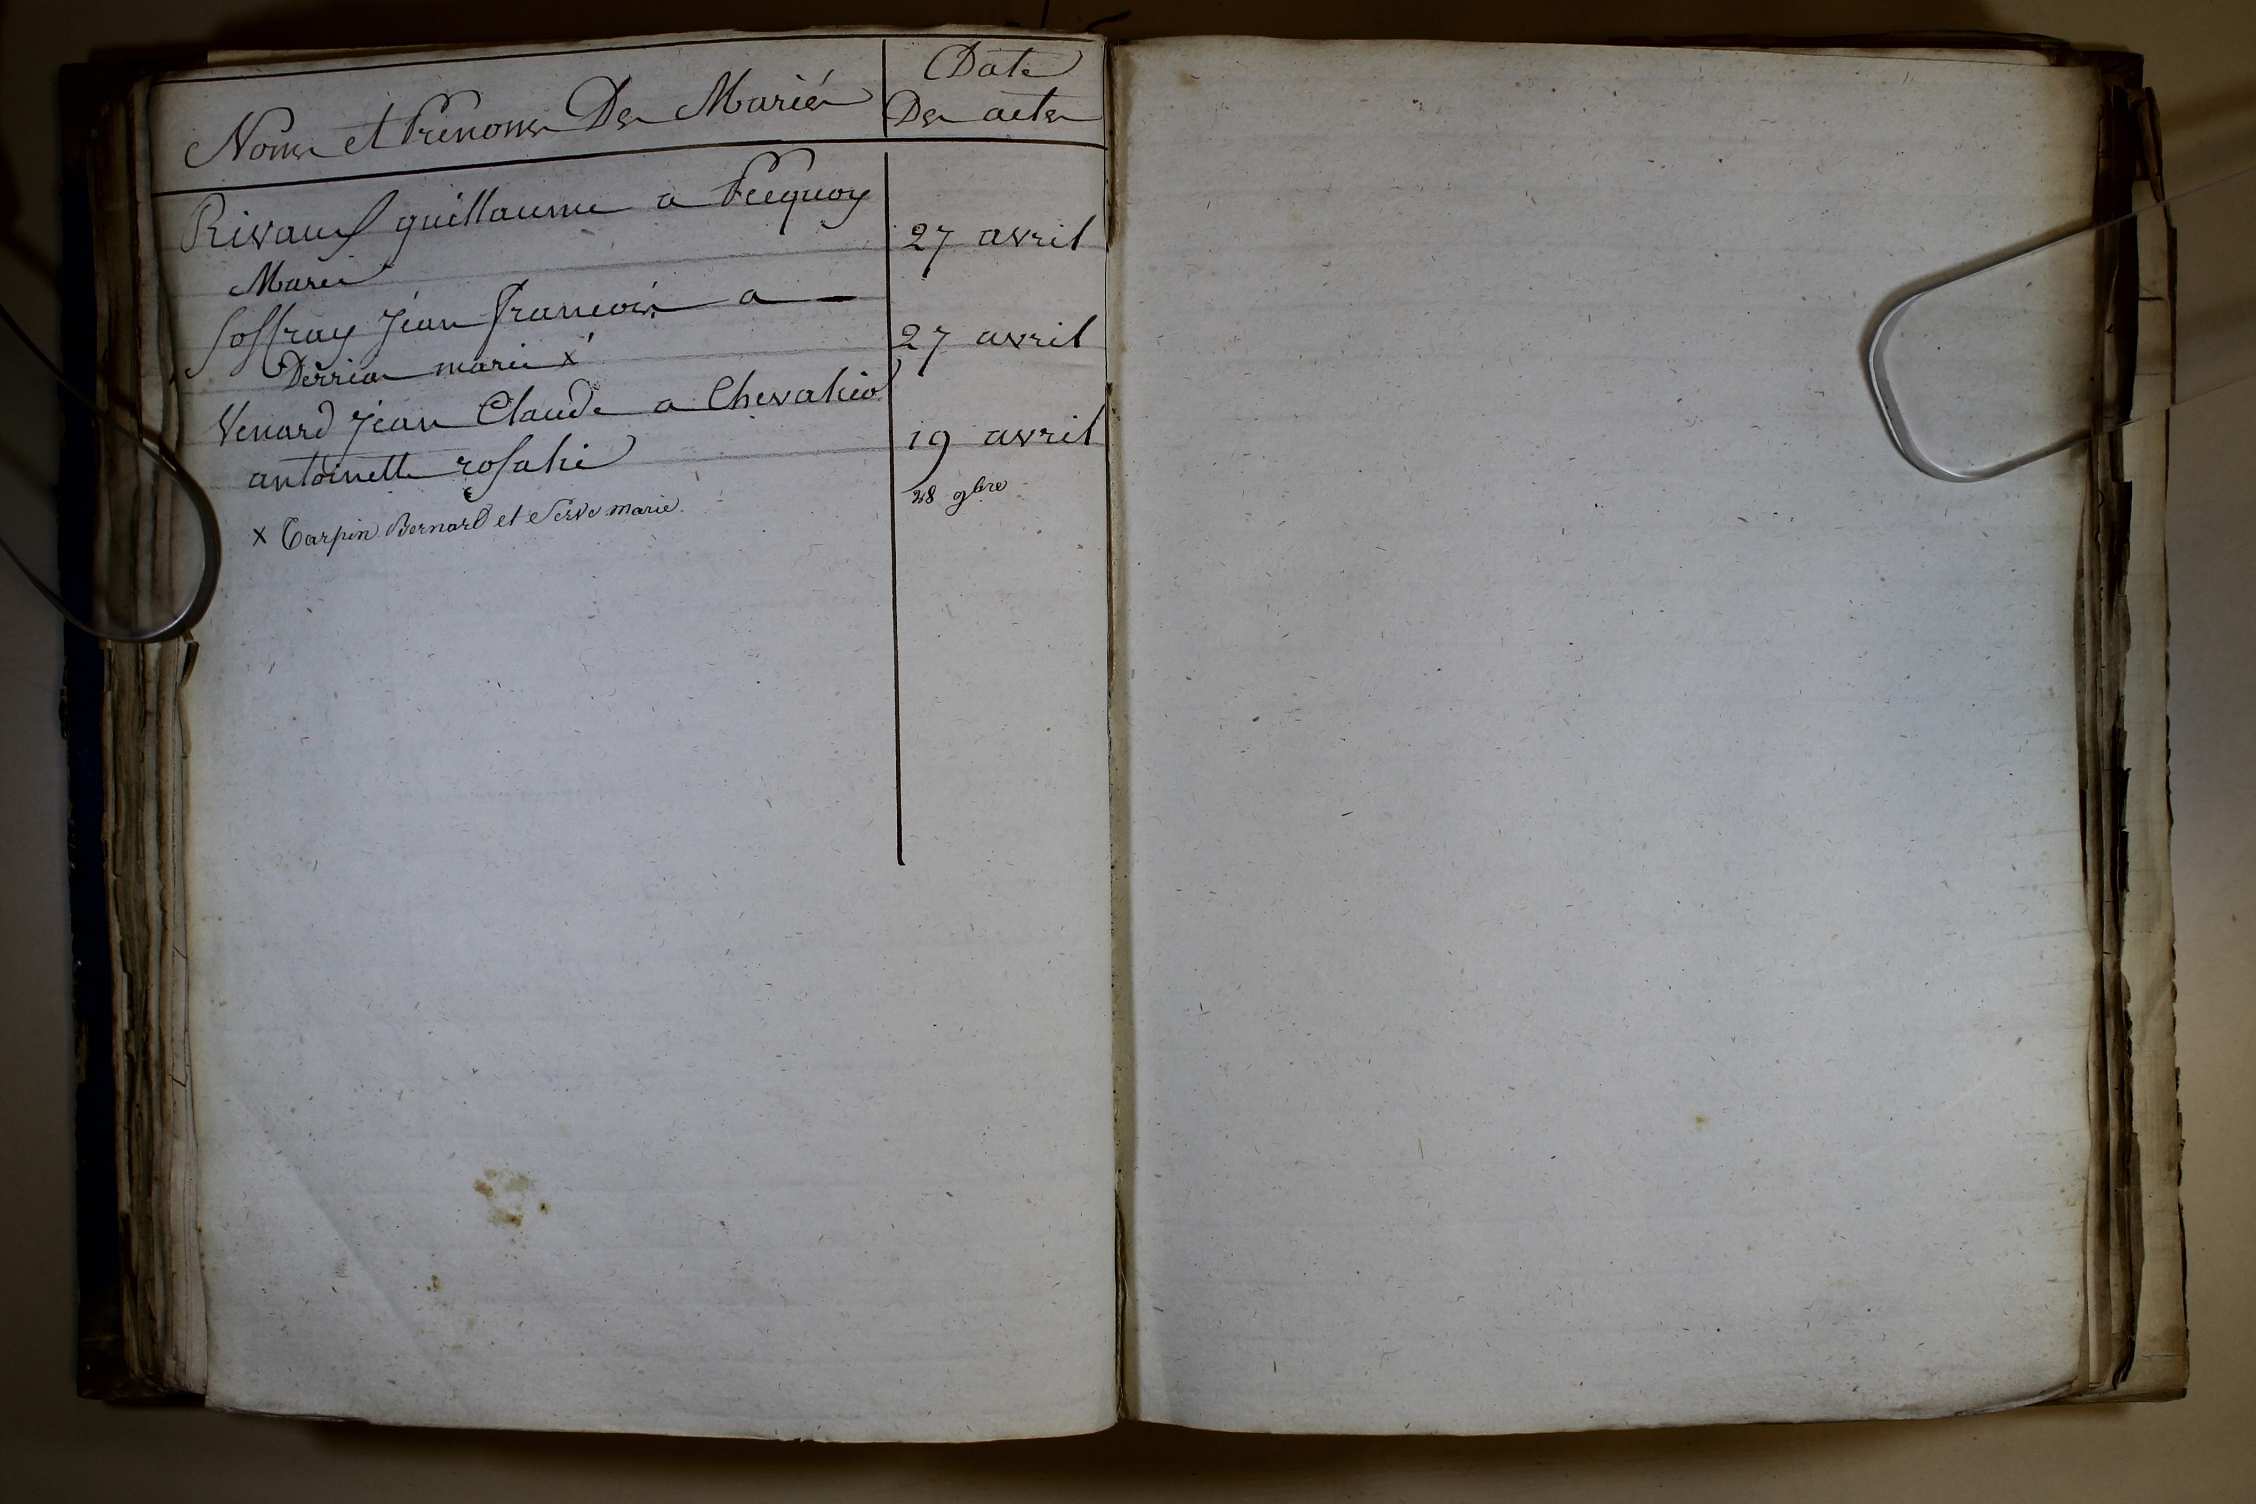 Noms et Prenoms Des Mariés
Date
Des actes
Rivaux guillaume a Pecquoy
Marie
27 avril
Soffray jean francois a —
Derrias marie x
27 avril
Venard jean Claude a Chevalier
antoinette rosalie
19 avril
x Carpin Bernard et Serve marie.
28 9bre